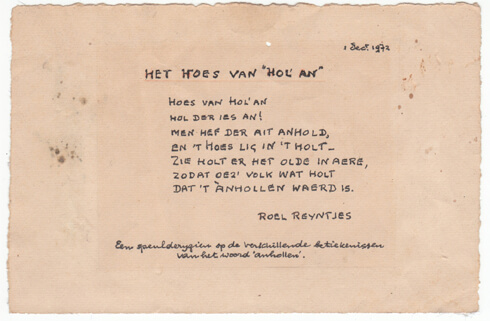 1 Dec. 1972
HET HOES VAN "HOL' AN"
HOES VAN HOL' AN
HOL DER IES AN!
MEN HEF DER AIT ANHOLD,
EN 'T HOES LIG IN 'T HOLT_
ZIE HOLT ER HET OLDE IN AERE,
ZODAT OEZ' VOLK WAT HOLT
DAT 'T ÀNHOLLEN WAERD IS.
ROEL REYNTJES
Een speulderygien op de verschillende betiekenissen
van het woord 'anhollen'.